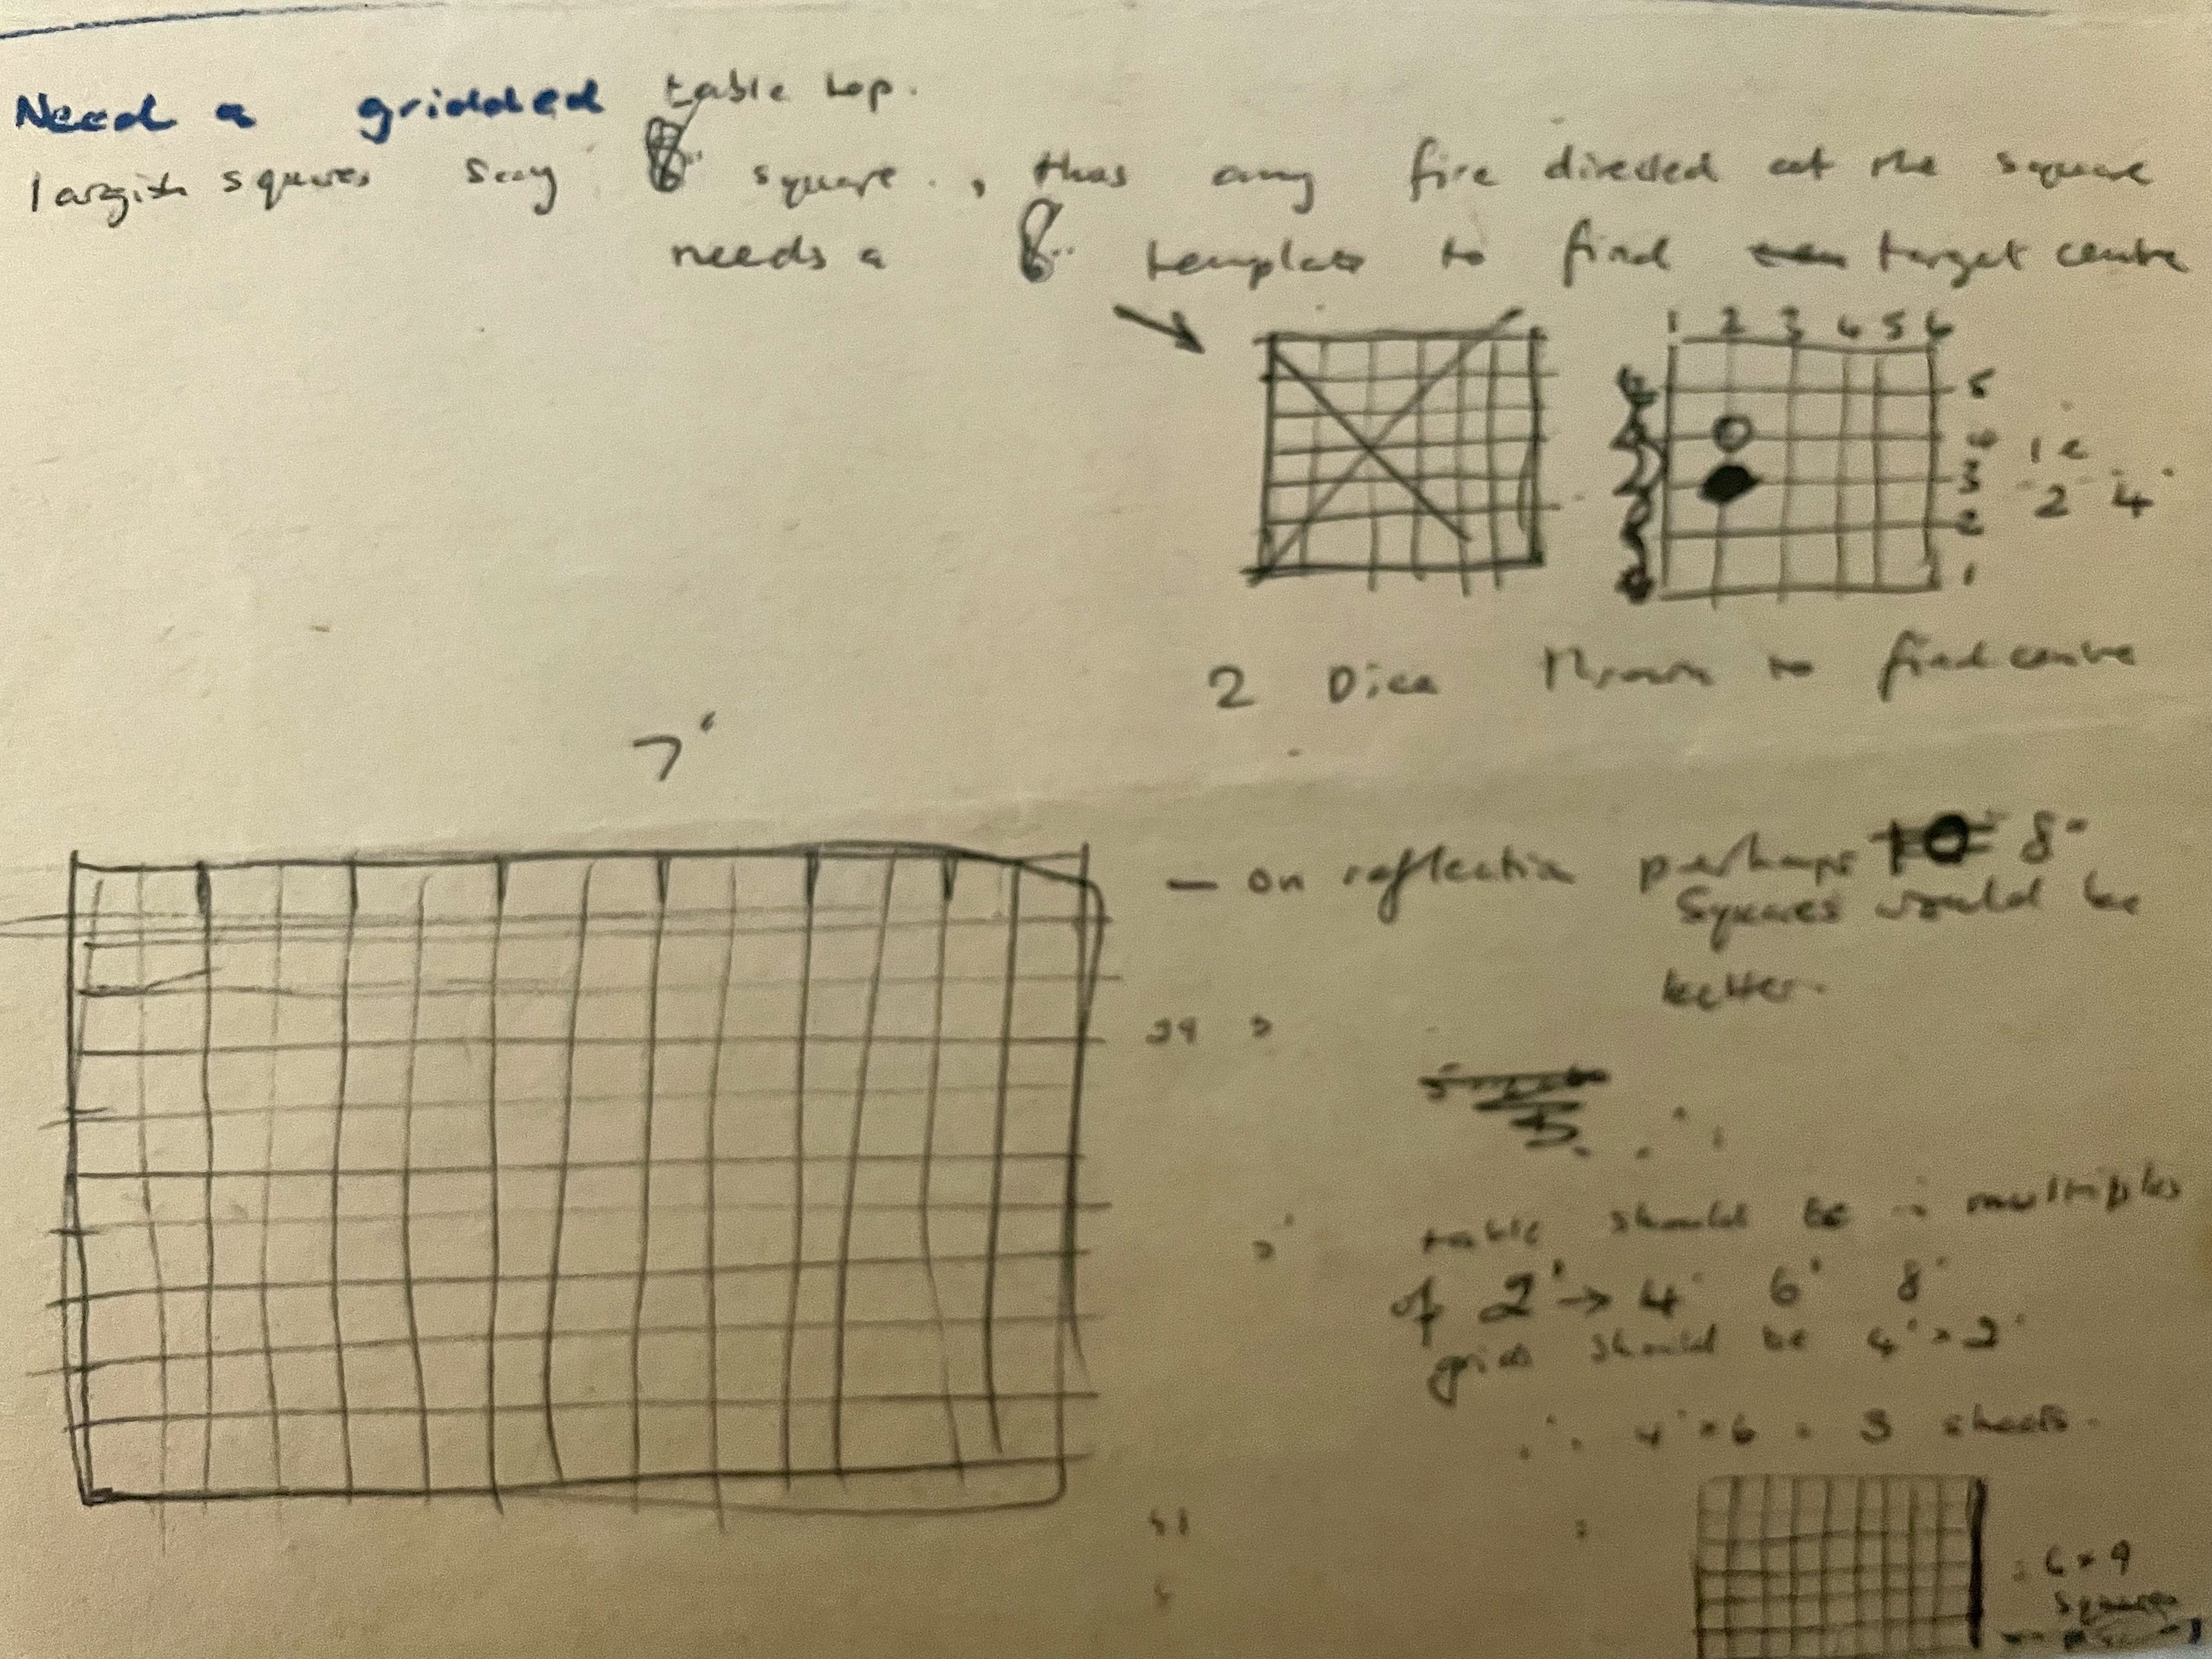 Need a gridded table top.
largish squares say 6" square., thus any fire directed at the square
needs a 6" template to find target centre
1 2 3 4 5 6
5
4
3
2
1
ie
2 4
2 Dice thrown to find centre
7'
— on reflection perhaps 8"
squares would be
better.
table should be in multiples
of 2' → 4' 6' 8'
grids should be 4' × 2'
∴ 4' × 6 = 3 sheets.
= 6 × 9
squares